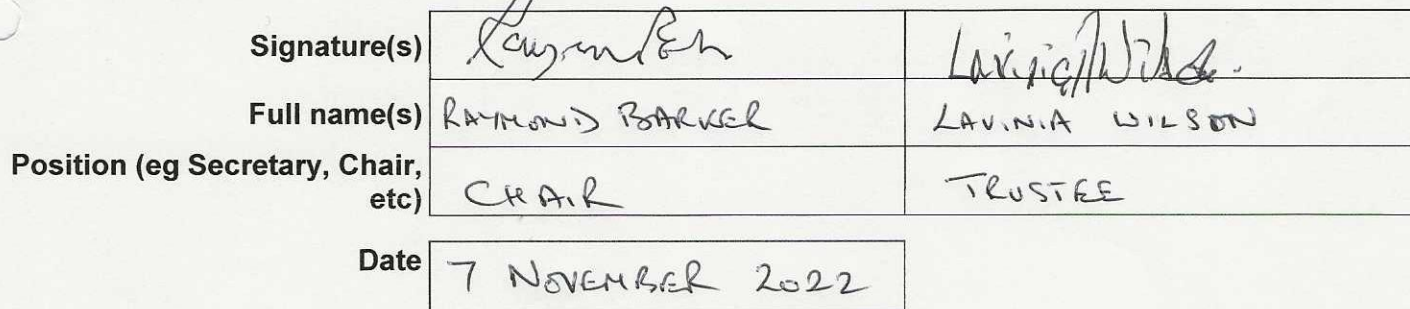 Signature(s) Lavinia Wilson.
Full name(s) RAYMOND BARKER LAVINIA WILSON
Position (eg Secretary, Chair,
etc) CHAIR TRUSTEE
Date 7 NOVEMBER 2022